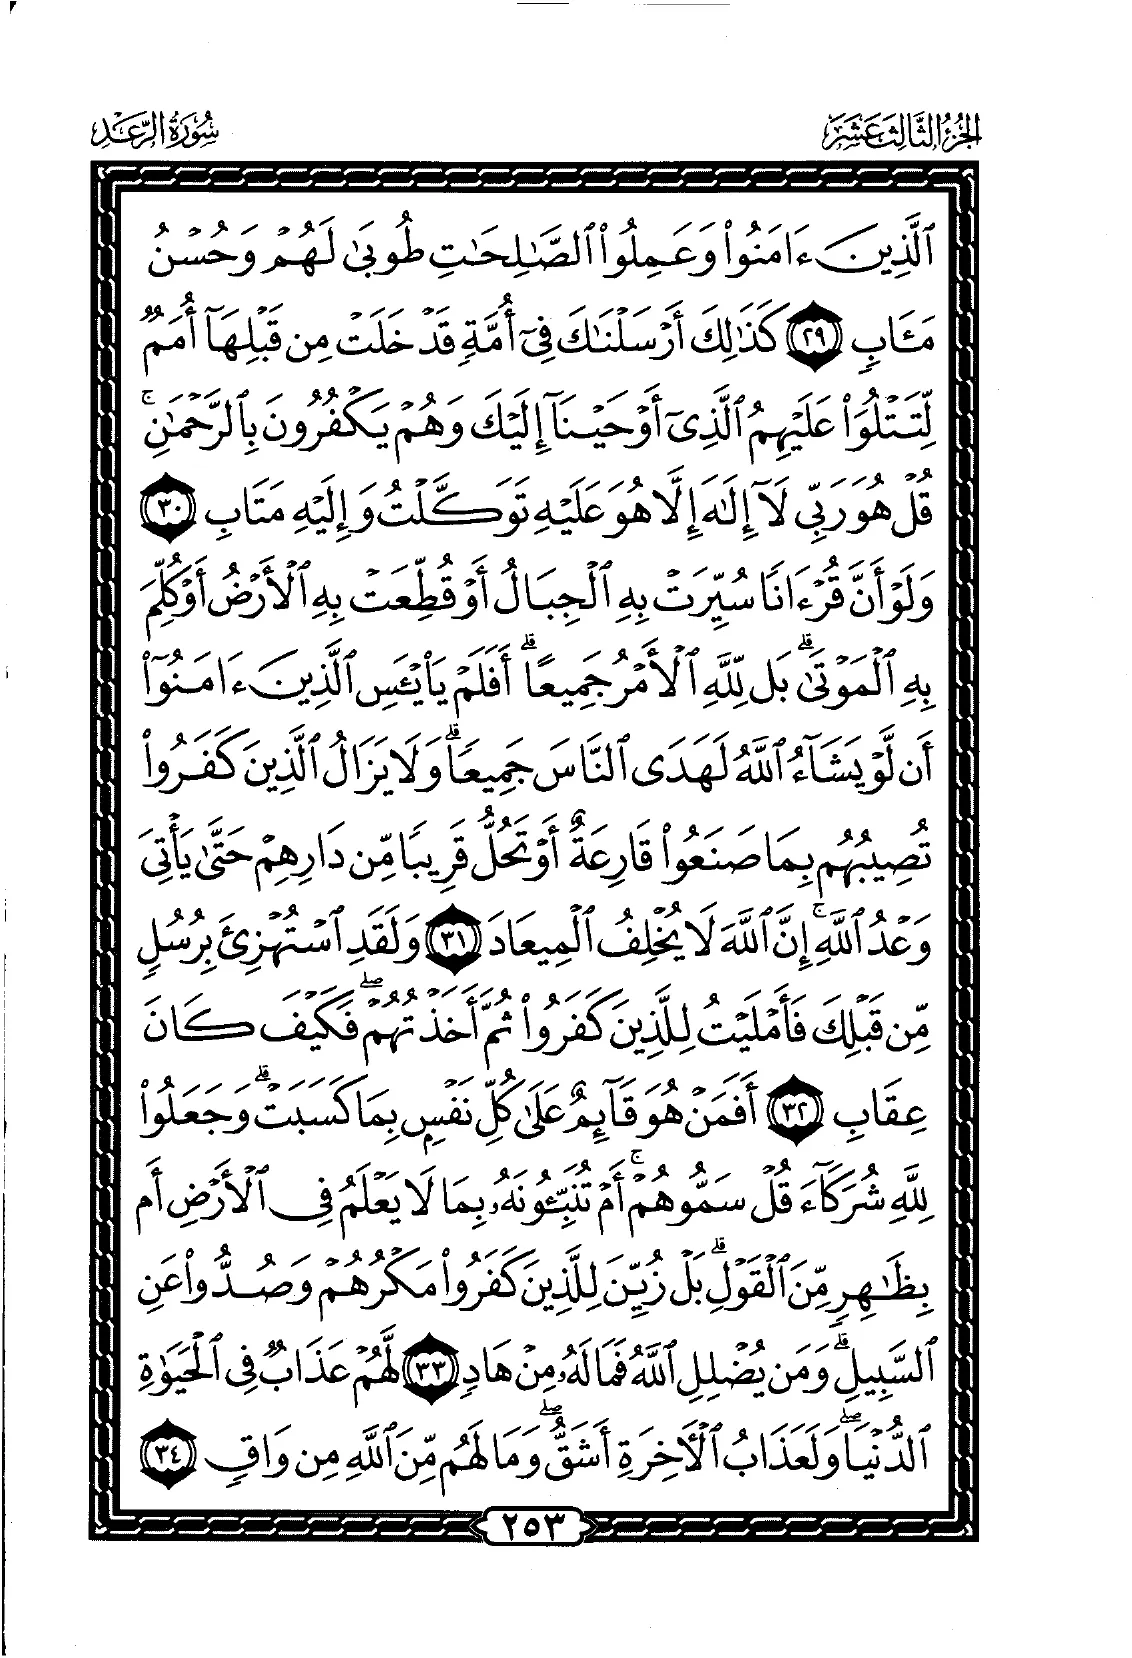 الجزء الثالث عشر
سورة الرعد
ٱلَّذِينَ ءَامَنُوا۟ وَعَمِلُوا۟ ٱلصَّـٰلِحَـٰتِ طُوبَىٰ لَهُمْ وَحُسْنُ
مَـَٔابٍ ۝٢٩ كَذَٰلِكَ أَرْسَلْنَـٰكَ فِىٓ أُمَّةٍ قَدْ خَلَتْ مِن قَبْلِهَآ أُمَمٌ
لِّتَتْلُوَا۟ عَلَيْهِمُ ٱلَّذِىٓ أَوْحَيْنَآ إِلَيْكَ وَهُمْ يَكْفُرُونَ بِٱلرَّحْمَـٰنِ ۚ
قُلْ هُوَ رَبِّى لَآ إِلَـٰهَ إِلَّا هُوَ عَلَيْهِ تَوَكَّلْتُ وَإِلَيْهِ مَتَابِ ۝٣٠
وَلَوْ أَنَّ قُرْءَانًا سُيِّرَتْ بِهِ ٱلْجِبَالُ أَوْ قُطِّعَتْ بِهِ ٱلْأَرْضُ أَوْ كُلِّمَ
بِهِ ٱلْمَوْتَىٰ ۗ بَل لِّلَّهِ ٱلْأَمْرُ جَمِيعًا ۗ أَفَلَمْ يَا۟يْـَٔسِ ٱلَّذِينَ ءَامَنُوٓا۟
أَن لَّوْ يَشَآءُ ٱللَّهُ لَهَدَى ٱلنَّاسَ جَمِيعًا ۗ وَلَا يَزَالُ ٱلَّذِينَ كَفَرُوا۟
تُصِيبُهُم بِمَا صَنَعُوا۟ قَارِعَةٌ أَوْ تَحُلُّ قَرِيبًا مِّن دَارِهِمْ حَتَّىٰ يَأْتِىَ
وَعْدُ ٱللَّهِ ۚ إِنَّ ٱللَّهَ لَا يُخْلِفُ ٱلْمِيعَادَ ۝٣١ وَلَقَدِ ٱسْتُهْزِئَ بِرُسُلٍ
مِّن قَبْلِكَ فَأَمْلَيْتُ لِلَّذِينَ كَفَرُوا۟ ثُمَّ أَخَذْتُهُمْ ۖ فَكَيْفَ كَانَ
عِقَابِ ۝٣٢ أَفَمَنْ هُوَ قَآئِمٌ عَلَىٰ كُلِّ نَفْسٍۭ بِمَا كَسَبَتْ ۗ وَجَعَلُوا۟
لِلَّهِ شُرَكَآءَ قُلْ سَمُّوهُمْ ۚ أَمْ تُنَبِّـُٔونَهُۥ بِمَا لَا يَعْلَمُ فِى ٱلْأَرْضِ أَم
بِظَـٰهِرٍ مِّنَ ٱلْقَوْلِ ۗ بَلْ زُيِّنَ لِلَّذِينَ كَفَرُوا۟ مَكْرُهُمْ وَصُدُّوا۟ عَنِ
ٱلسَّبِيلِ ۗ وَمَن يُضْلِلِ ٱللَّهُ فَمَا لَهُۥ مِنْ هَادٍ ۝٣٣ لَّهُمْ عَذَابٌ فِى ٱلْحَيَوٰةِ
ٱلدُّنْيَا ۖ وَلَعَذَابُ ٱلْـَٔاخِرَةِ أَشَقُّ ۖ وَمَا لَهُم مِّنَ ٱللَّهِ مِن وَاقٍ ۝٣٤
٢٥٣